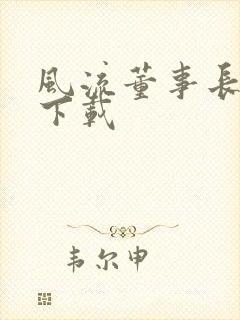 風流董事長
下載
韦尔申